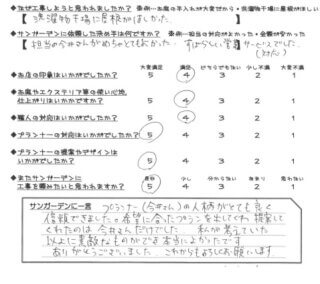 ◆なぜ工事しようと思われましたか? 参考例…お庭の手入れが大変だから・洗濯物干場に屋根がほしい
【 洗濯物干場に屋根がほしかった 】
◆サンガーデンに依頼した決め手は何ですか? 参考例…担当の対応がよかった・金額が安かった
【 担当の今井さんがめちゃとてもよかった すばらしい営業サービスでした。 】
大変満足 満足 どちらでもない 少し不満 大変不満
◆お店の印象はいかがでしたか? 5 4 3 2 1
◆お庭やエクステリア等の使い心地、
仕上がりはいかがですか? 5 4 3 2 1
◆職人の対応はいかがでしたか? 5 4 3 2 1
◆プランナーの対応はいかがでしたか? 5 4 3 2 1
◆プランナーの提案やデザインは
いかがでしたか? 5 4 3 2 1
◆またサンガーデンに 是非 少し 分からない あまり 思わない
工事を頼みたいと思われますか? 5 4 3 2 1
サンガーデンに一言 プランナー(今井さん)の人柄がとても良く
信頼できました。希望に合ったプランを出してくれ 提案して
くれたのは 今井さんだけでした。 私が考えていた
以上に素敵なものができ 本当によかったです。
ありがとうございました。これからもよろしくお願いします。